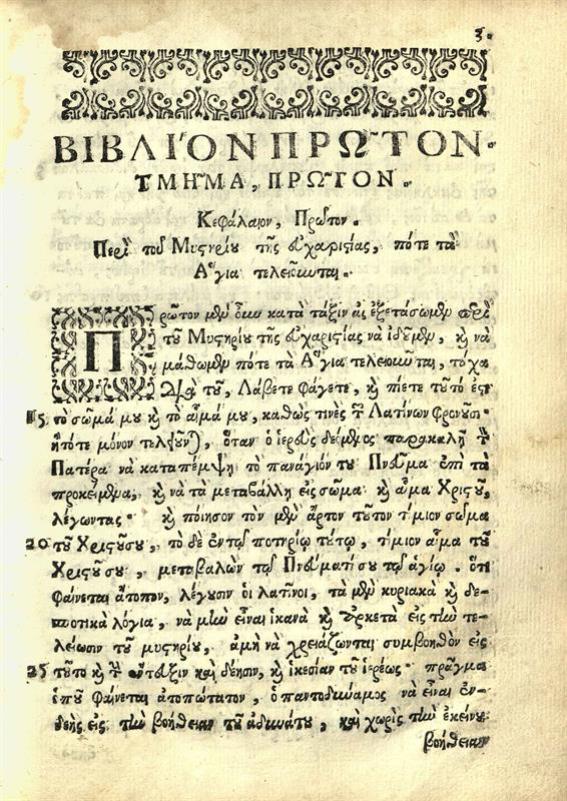 3.
ΒΙΒΛΙΌΝ ΠΡΩ͂ΤΟΝ.
ΤΜΗ͂ΜΑ, ΠΡΩ͂ΤΟΝ.
Κεφάλαιον, Πρῶτον.
Περὶ τοῦ Μυστηρίου τῆς εὐχαριστίας, πότε τὰ
Ἅγια τελειοῦνται.
Πρῶτον μὲν οὖν κατὰ τάξιν ἂς ἐξετάσωμεν περὶ
τοῦ Μυστηρίου τῆς εὐχαριστίας νὰ ἰδοῦμεν, καὶ νὰ
μάθωμεν πότε τὰ Ἅγια τελειοῦνται, τάχα
διὰ τοῦ, Λάβετε φάγετε, καὶ πίετε τοῦτό ἐστι
15 τὸ σῶμά μου καὶ τὸ αἷμά μου, καθὼς τινὲς τῶν Λατίνων φρονοῦσι.
ἢ τότε μόνον τελοῦνται, ὅταν ὁ ἱερεὺς δεόμενος παρακαλῇ τὸν
Πατέρα νὰ καταπέμψῃ τὸ πανάγιόν του Πνεῦμα ἐπὶ τὰ
προκείμενα, καὶ νὰ τὰ μεταβάλλῃ εἰς σῶμα καὶ αἷμα Χριστοῦ,
λέγωντας· καὶ ποίησον τὸν μὲν ἄρτον τοῦτον τίμιον σῶμα
20 τοῦ Χριστοῦ σου, τὸ δὲ ἐν τῷ ποτηρίῳ τούτῳ, τίμιον αἷμα τοῦ
Χριστοῦ σου, μεταβαλὼν τῷ Πνεύματί σου τῷ ἁγίῳ. ὅτι
φαίνεται ἄτοπον, λέγουσιν οἱ λατῖνοι, τὰ μὲν κυριακὰ καὶ δε-
σποτικὰ λόγια, νὰ μὴν εἶναι ἱκανὰ καὶ ἀρκετὰ εἰς τὴν τε-
λείωσιν τοῦ μυστηρίου, ἀμὴ νὰ χρειάζωνται συμβοηθὸν εἰς
25 τοῦτο καὶ τὴν ἔντευξιν καὶ δέησιν, καὶ ἱκεσίαν τοῦ ἱερέως· πρᾶγμα
ὁποῦ φαίνεται ἀτοπώτατον, ὁ παντοδύναμος νὰ εἶναι ἐν-
δεὴς εἰς τὴν βοήθειαν τοῦ ἀδυνάτου, καὶ χωρὶς τὴν ἐκείνου
βοήθειαν